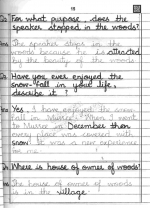 18
Q1 For what purpose, does the
speaker stopped in the woods?
Ans The speaker stops in the
woods because he is attracted
by the beauty of the woods
Q2 Have you ever enjoyed the
snow-fall in your life,
describe it?
Ans Yes, I have enjoyed the snow
fall in Murree. When I went
to Murree in December then
every place was covered with
snow. It was a new experience
for me.
Q3 Where is house of owner of woods?
Ans The house of owner of woods
is in the village.